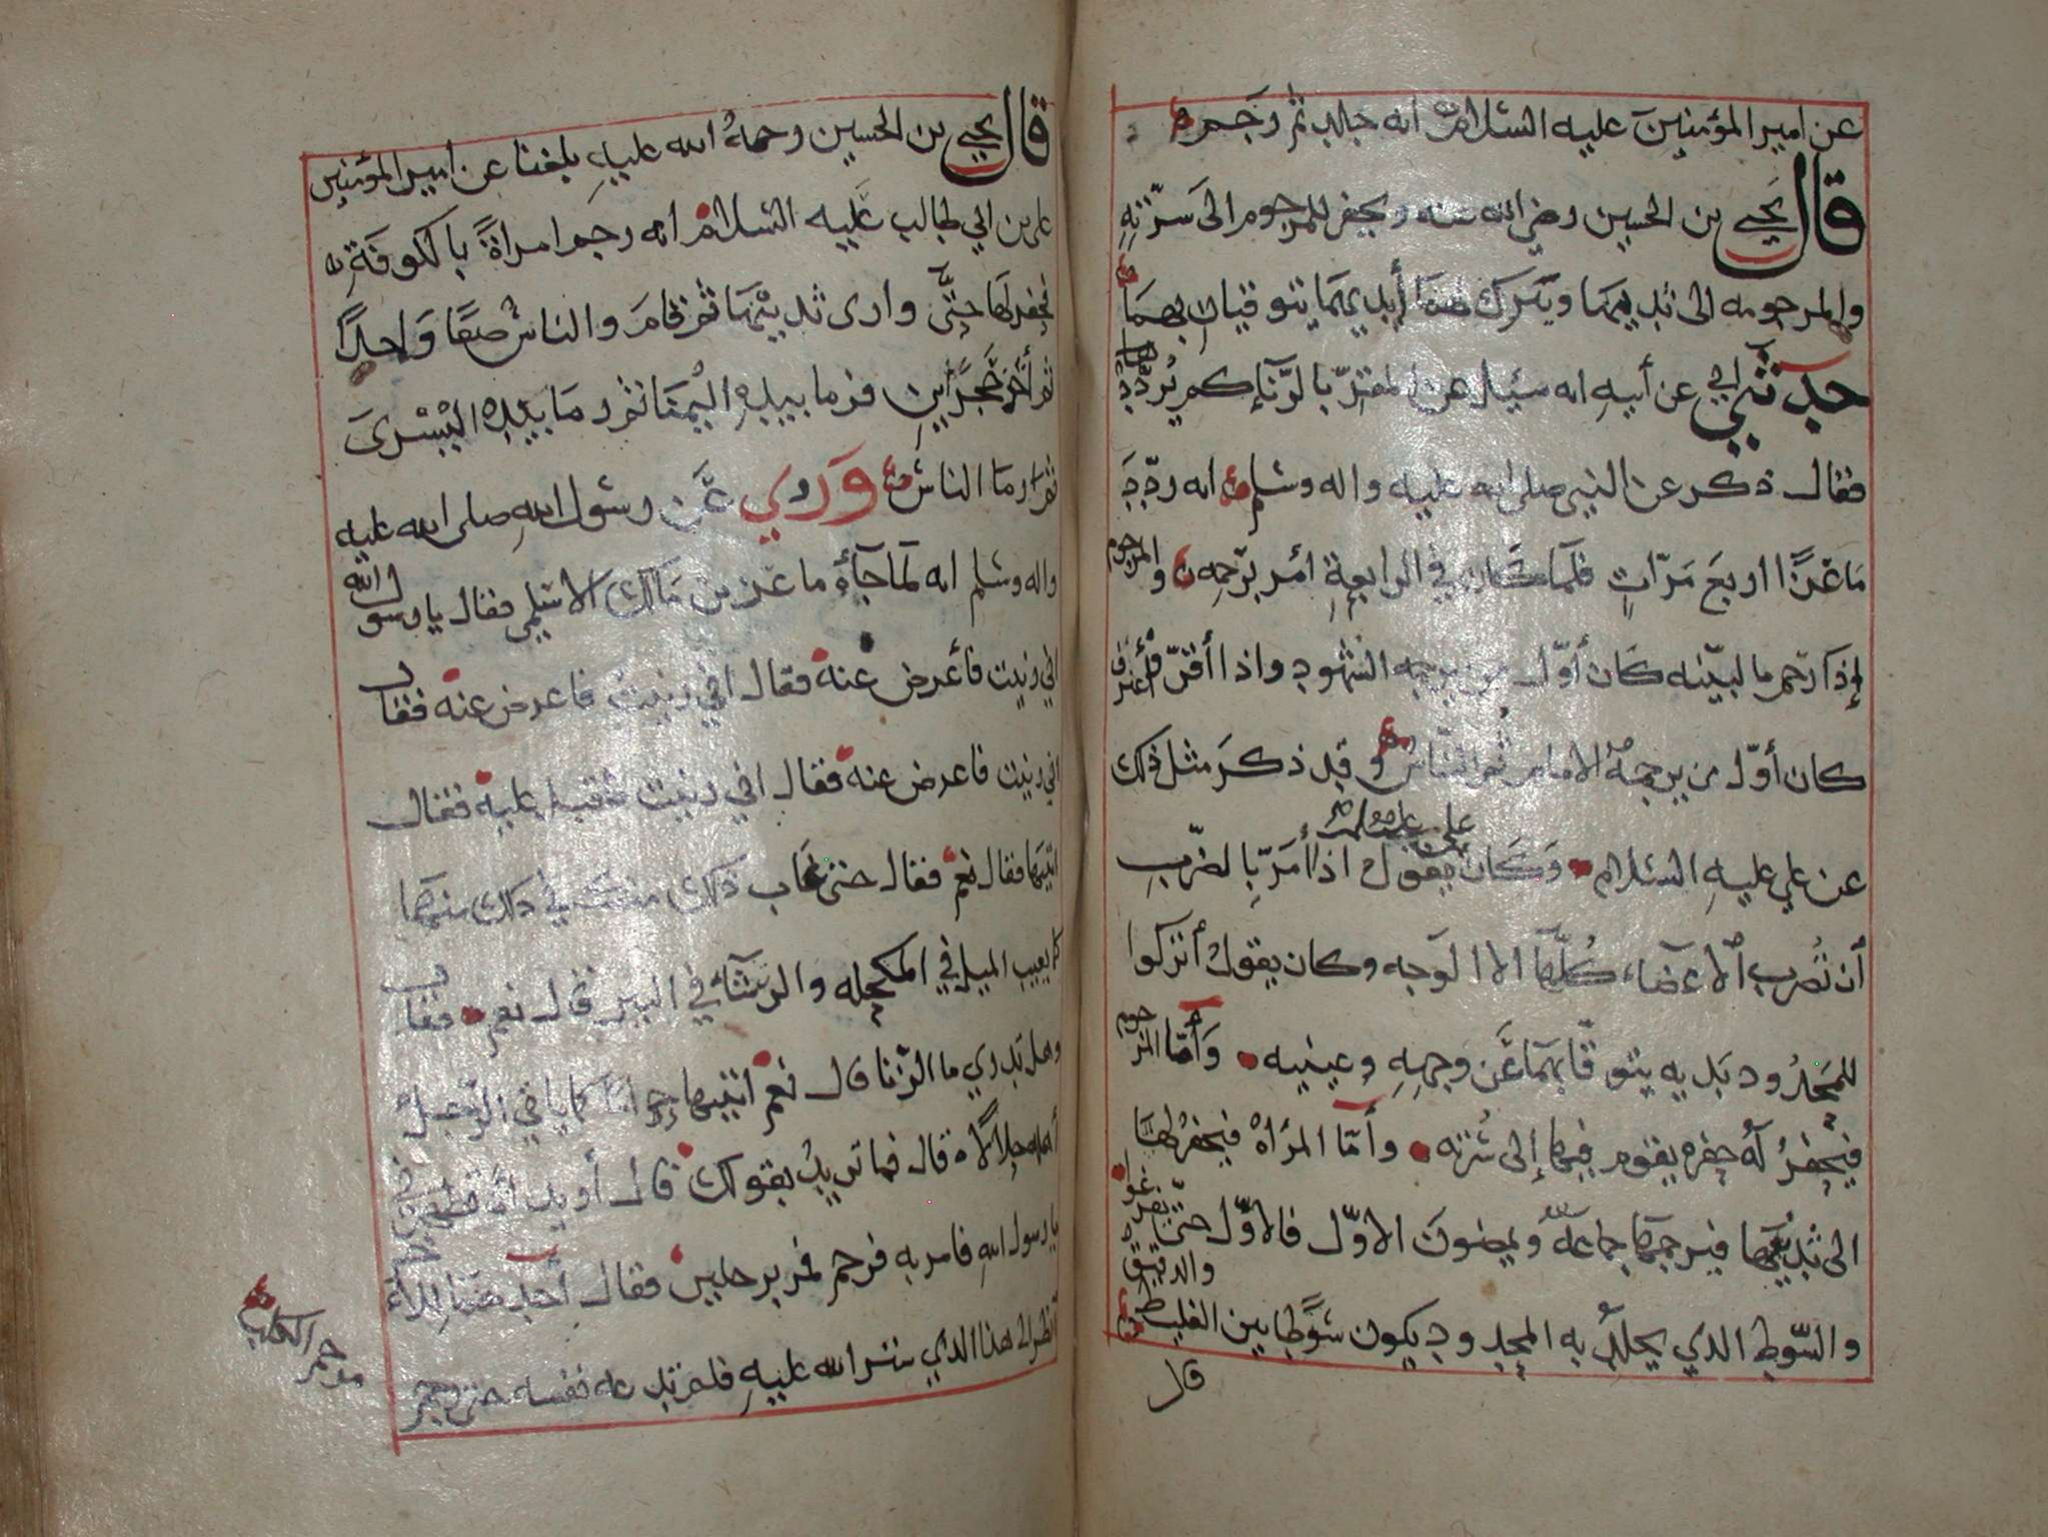 عن امير المؤمنين عليه السلام انه جلد ثم رجم
قال يحيى بن الحسين رضي الله عنه ويحفر للمرجوم الى سرّته
والمرجومه الى ثدييها ويترك لهما أيديهما يتوقيان بهما
حدثني ابي عن أبيه انه سئل عن المقرّ بالزنا كم يُردّد
فقال ذكر عن النبي صلى الله عليه واله وسلم انه ردّد
ماعزًا اربع مرّاتٍ فلما كان في الرابعةِ أمر برجمه والمرجوم
إذا رجم بالبيّنه كان أوّل من يرجمه الشهود واذا أقرّ فأعترف
كان أوّل من يرجمهُ الامام ثم الناس وقد ذكر مثل ذلك
عن علي عليه السلام وكان علي عليه السلام يقول اذا أمر بالضرب
أن تُضرب الأعضاء كُلّها الا الوجه وكان يقول أتركوا
للمحدود يديه يتوقّا بهما عَن وجههِ وعينيه وأمّا المرجوم
فيحفرُ لهُ حفره يقوم فيها إلى سُرّته وأمّا المرأهُ فيحفر لها
الى ثدييها فيرجمها جماعهٌ ويمضون الاوّل فالاوّل حتى يفرغوا
والسّوط الذي يجلدُ به المحدود يكون سوطا بين الغليظ والدقيق
قال
قال يحيى بن الحسين رحمهُ الله عليه بلغنا عن امير المؤمنين
علي بن ابي طالب عليه السلام انه رجم امراةً بالكوفةِ
فحفر لها حتّى وارى ثدييْها ثم قام والناس صفًا وَاحدًا
ثم أخذ حجرين فرما بيدهِ اليُمنا ثم رما بيدهِ اليُسْرىَ
ثم رما الناس وروي عَن رسول اللهِ صلى الله عليه
واله وسلم انه لما جآءُ ماعز بن مالك الاسلمي فقال يا رسول الله
اني زنيت فأعرض عنه فقال اني زنيت فاعرض عنه فقال
اني زنيت فاعرض عنه فقال اني زنيت فقبل عليه فقال
اتيتها فقال نعم فقال حتى غاب ذلك منك في ذلك منها
كما يغيب الميل في المكحله والرشآء في البير قال نعم فقال
وهل تدري ما الزنا قال نعم اتيتها حراما كما ياتي الرّجل
أهله حلالاً قال فما تريدُ بقولك قال أريد أن تطهرني
يا رسول اللهِ فامر به فرجم فمر برجلين فقال أحدهما
أنظر الى هذا الذي ستر الله عليهِ فلم تدعه نفسه حتى رجم
رجم الكلب